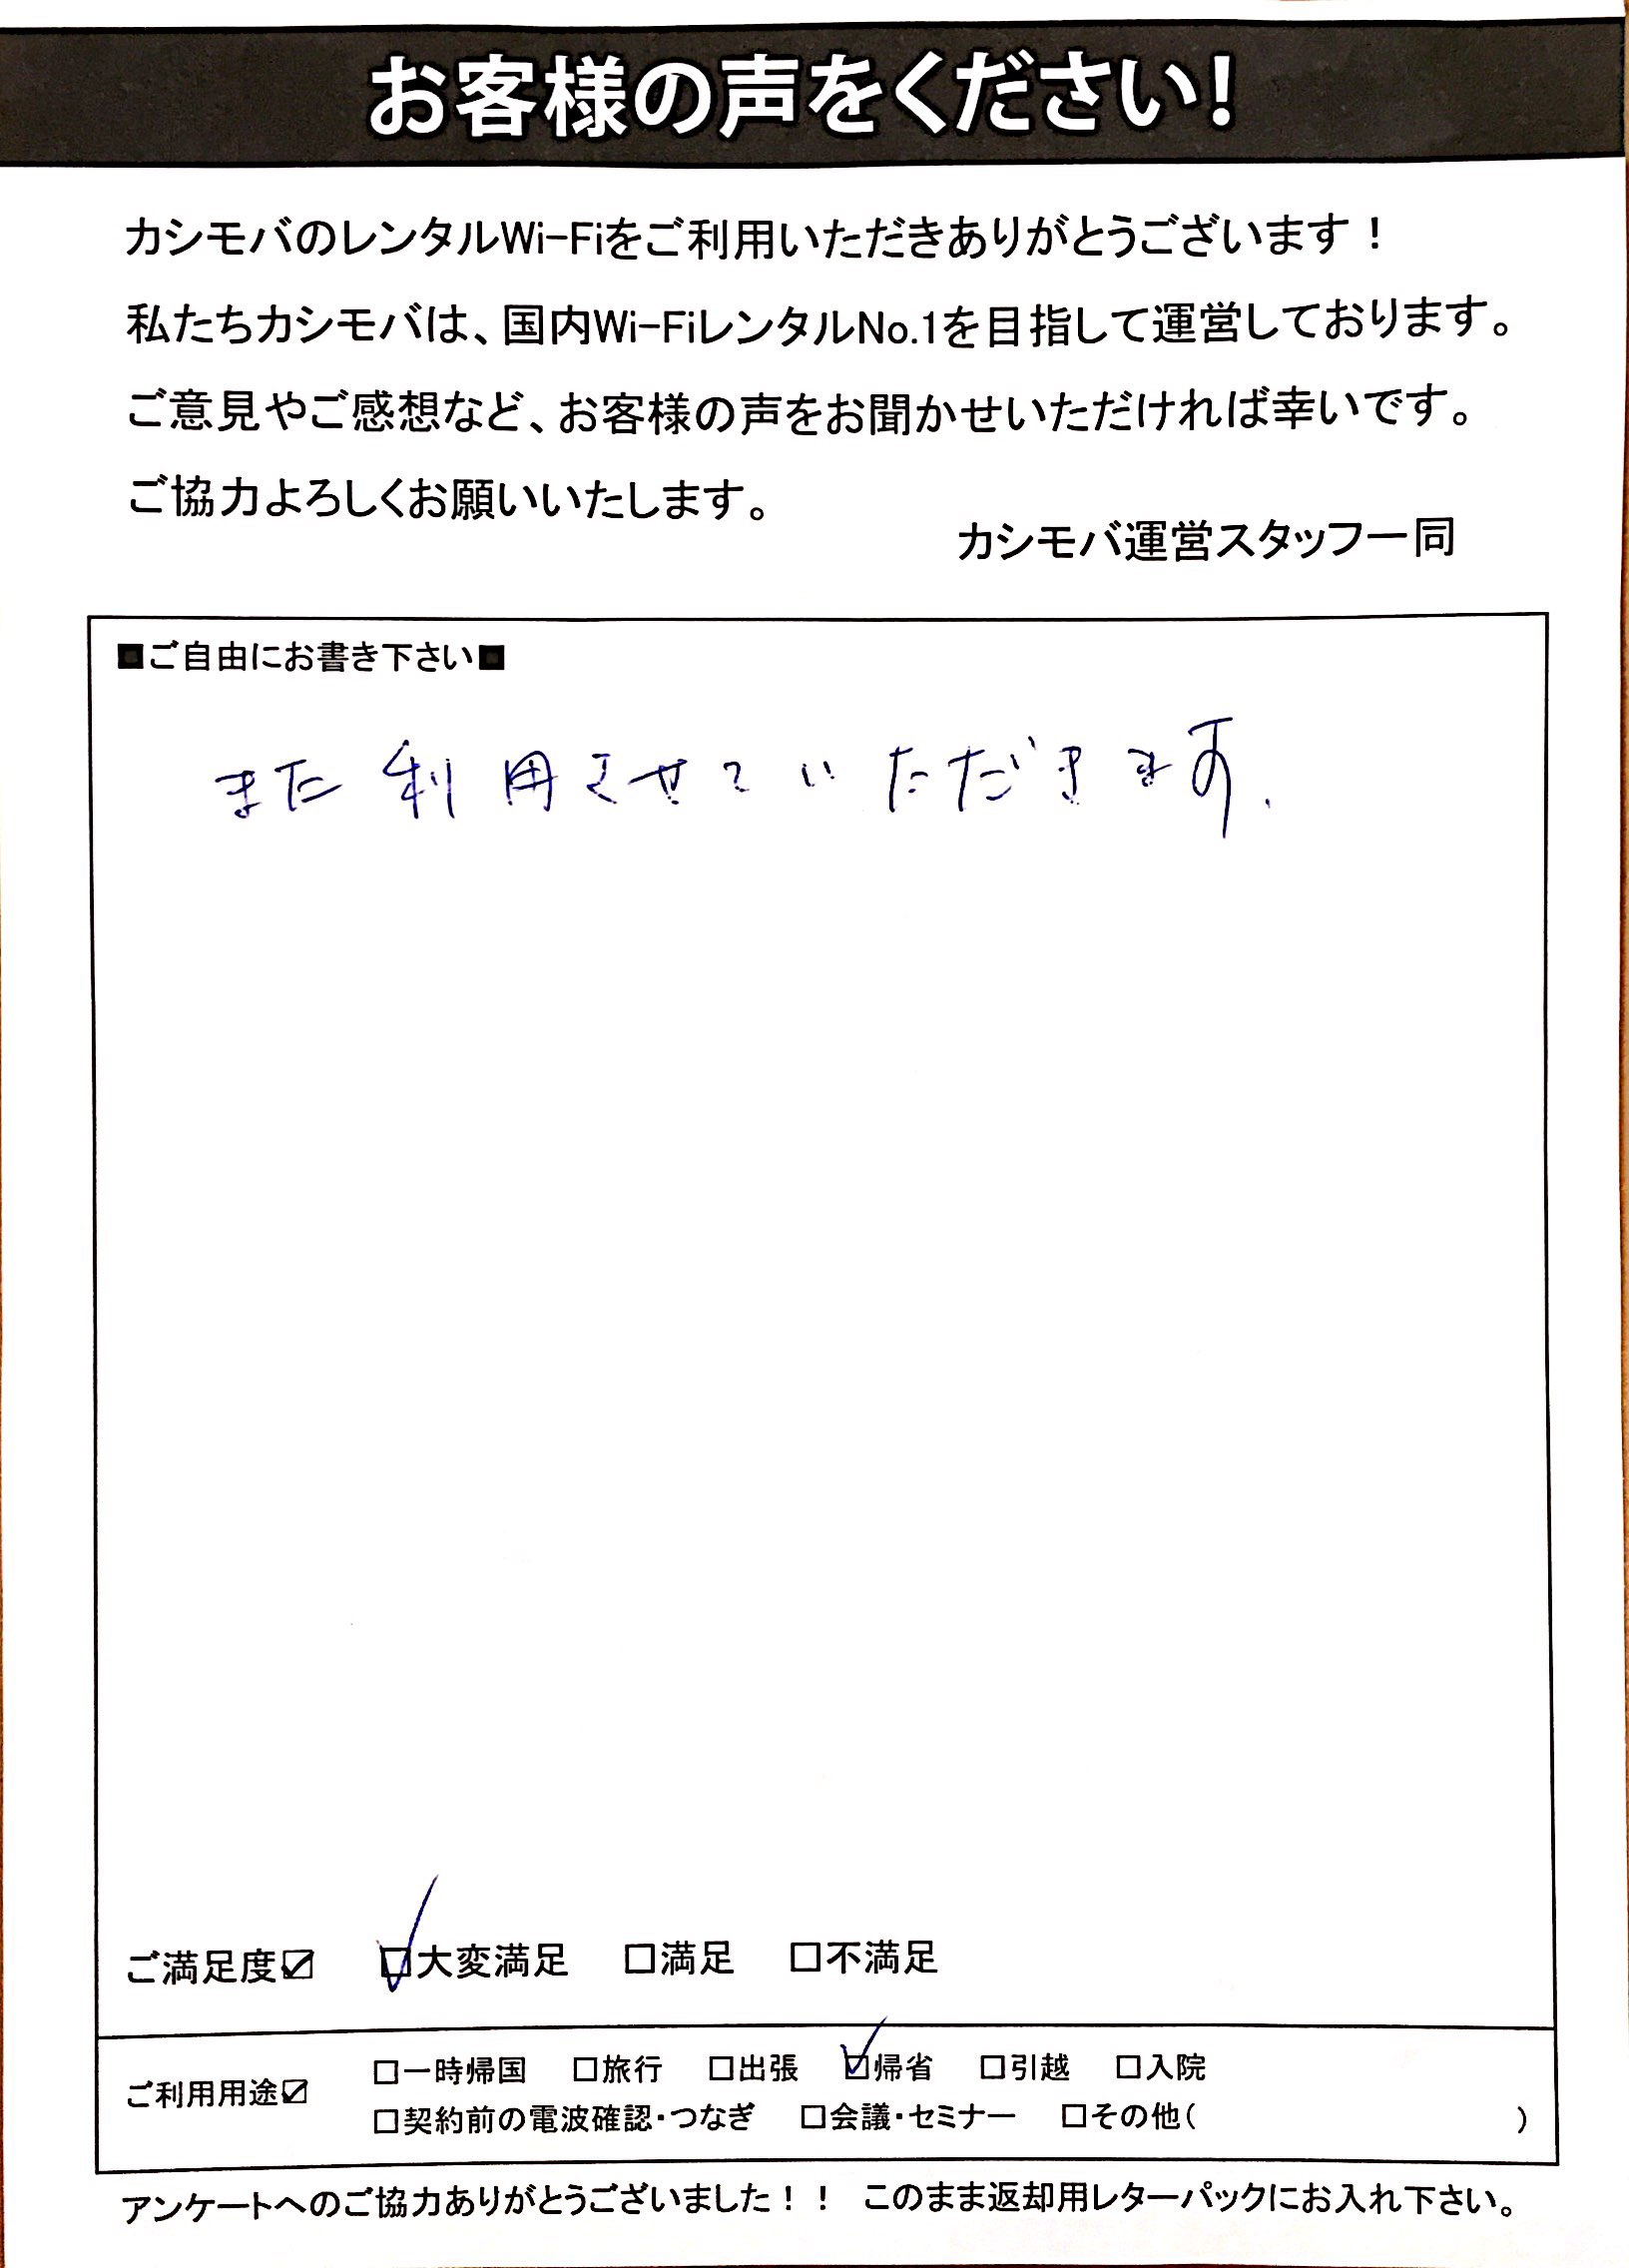 お客様の声をください!
カシモバのレンタルWi-Fiをご利用いただきありがとうございます！
私たちカシモバは、国内Wi-FiレンタルNo.1を目指して運営しております。
ご意見やご感想など、お客様の声をお聞かせいただければ幸いです。
ご協力よろしくお願いいたします。
カシモバ運営スタッフ一同
■ご自由にお書き下さい■
また利用させていただきます.
ご満足度☑ ☑大変満足 □満足 □不満足
ご利用用途☑ □一時帰国 □旅行 □出張 ☑帰省 □引越 □入院
□契約前の電波確認・つなぎ □会議・セミナー □その他( )
アンケートへのご協力ありがとうございました！！ このまま返却用レターパックにお入れ下さい。